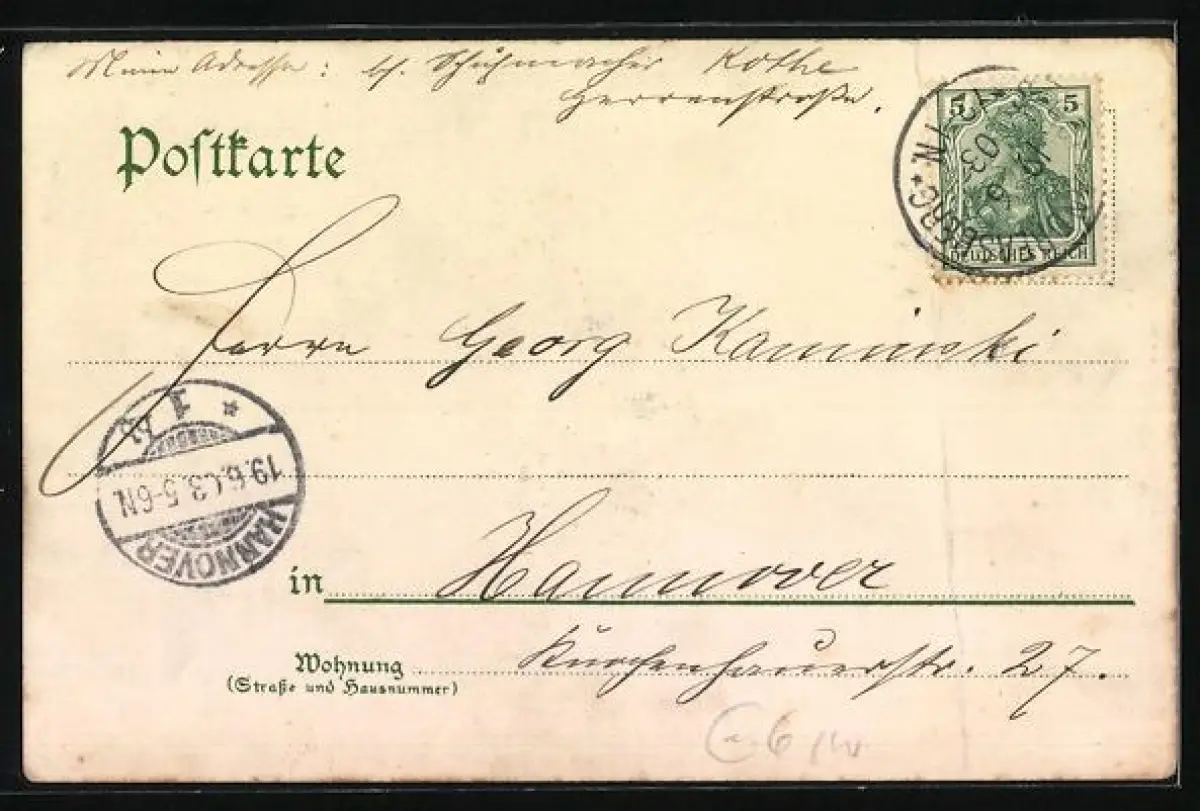 Meine Adresse: bei Schuhmacher Kothe
Herrenstraße.
Postkarte
5 5
DEUTSCHES REICH
Herrn Georg Kaminski
HANNOVER
19.6.03. 5-6N.
in Hannover
Wohnung
(Straße und Hausnummer)
27.